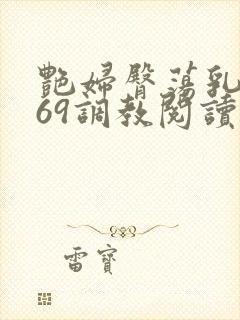 艷婦臀蕩乳
69調教閱讀
雷寶